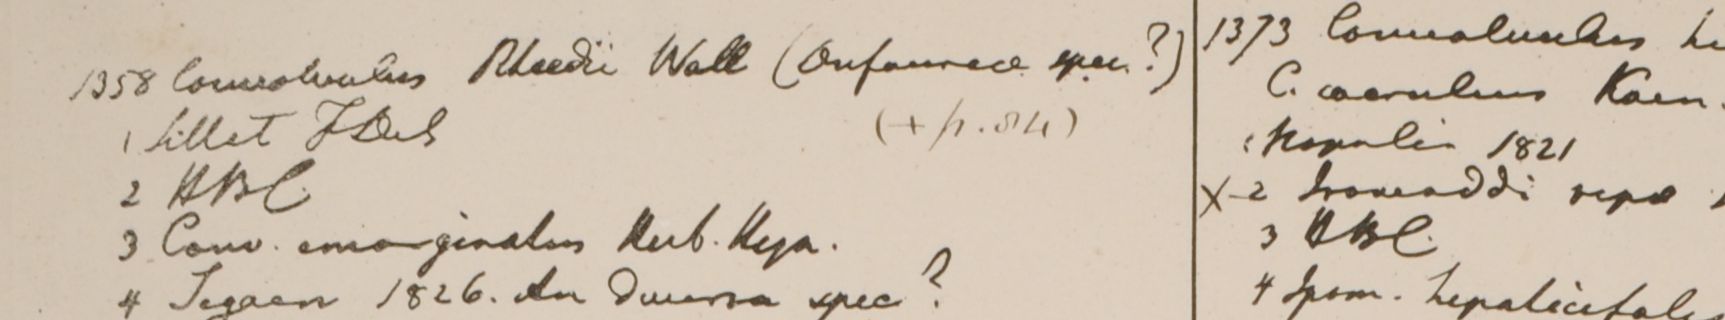 1358 Convolvulus Rheedii Wall (An fauna spec.?)
(+ p. 84)
1 Sillet F D & S
2 HBC
3 Conv. emarginatus Herb. Heyn.
4 Segaen 1826. An diversa spec?
1373 Convolvulus he
C. coeruleus Koen.
1 Napalia 1821
X-2 Irowaddi ripae
3 HBC
4 Ipom. hepaticifolia